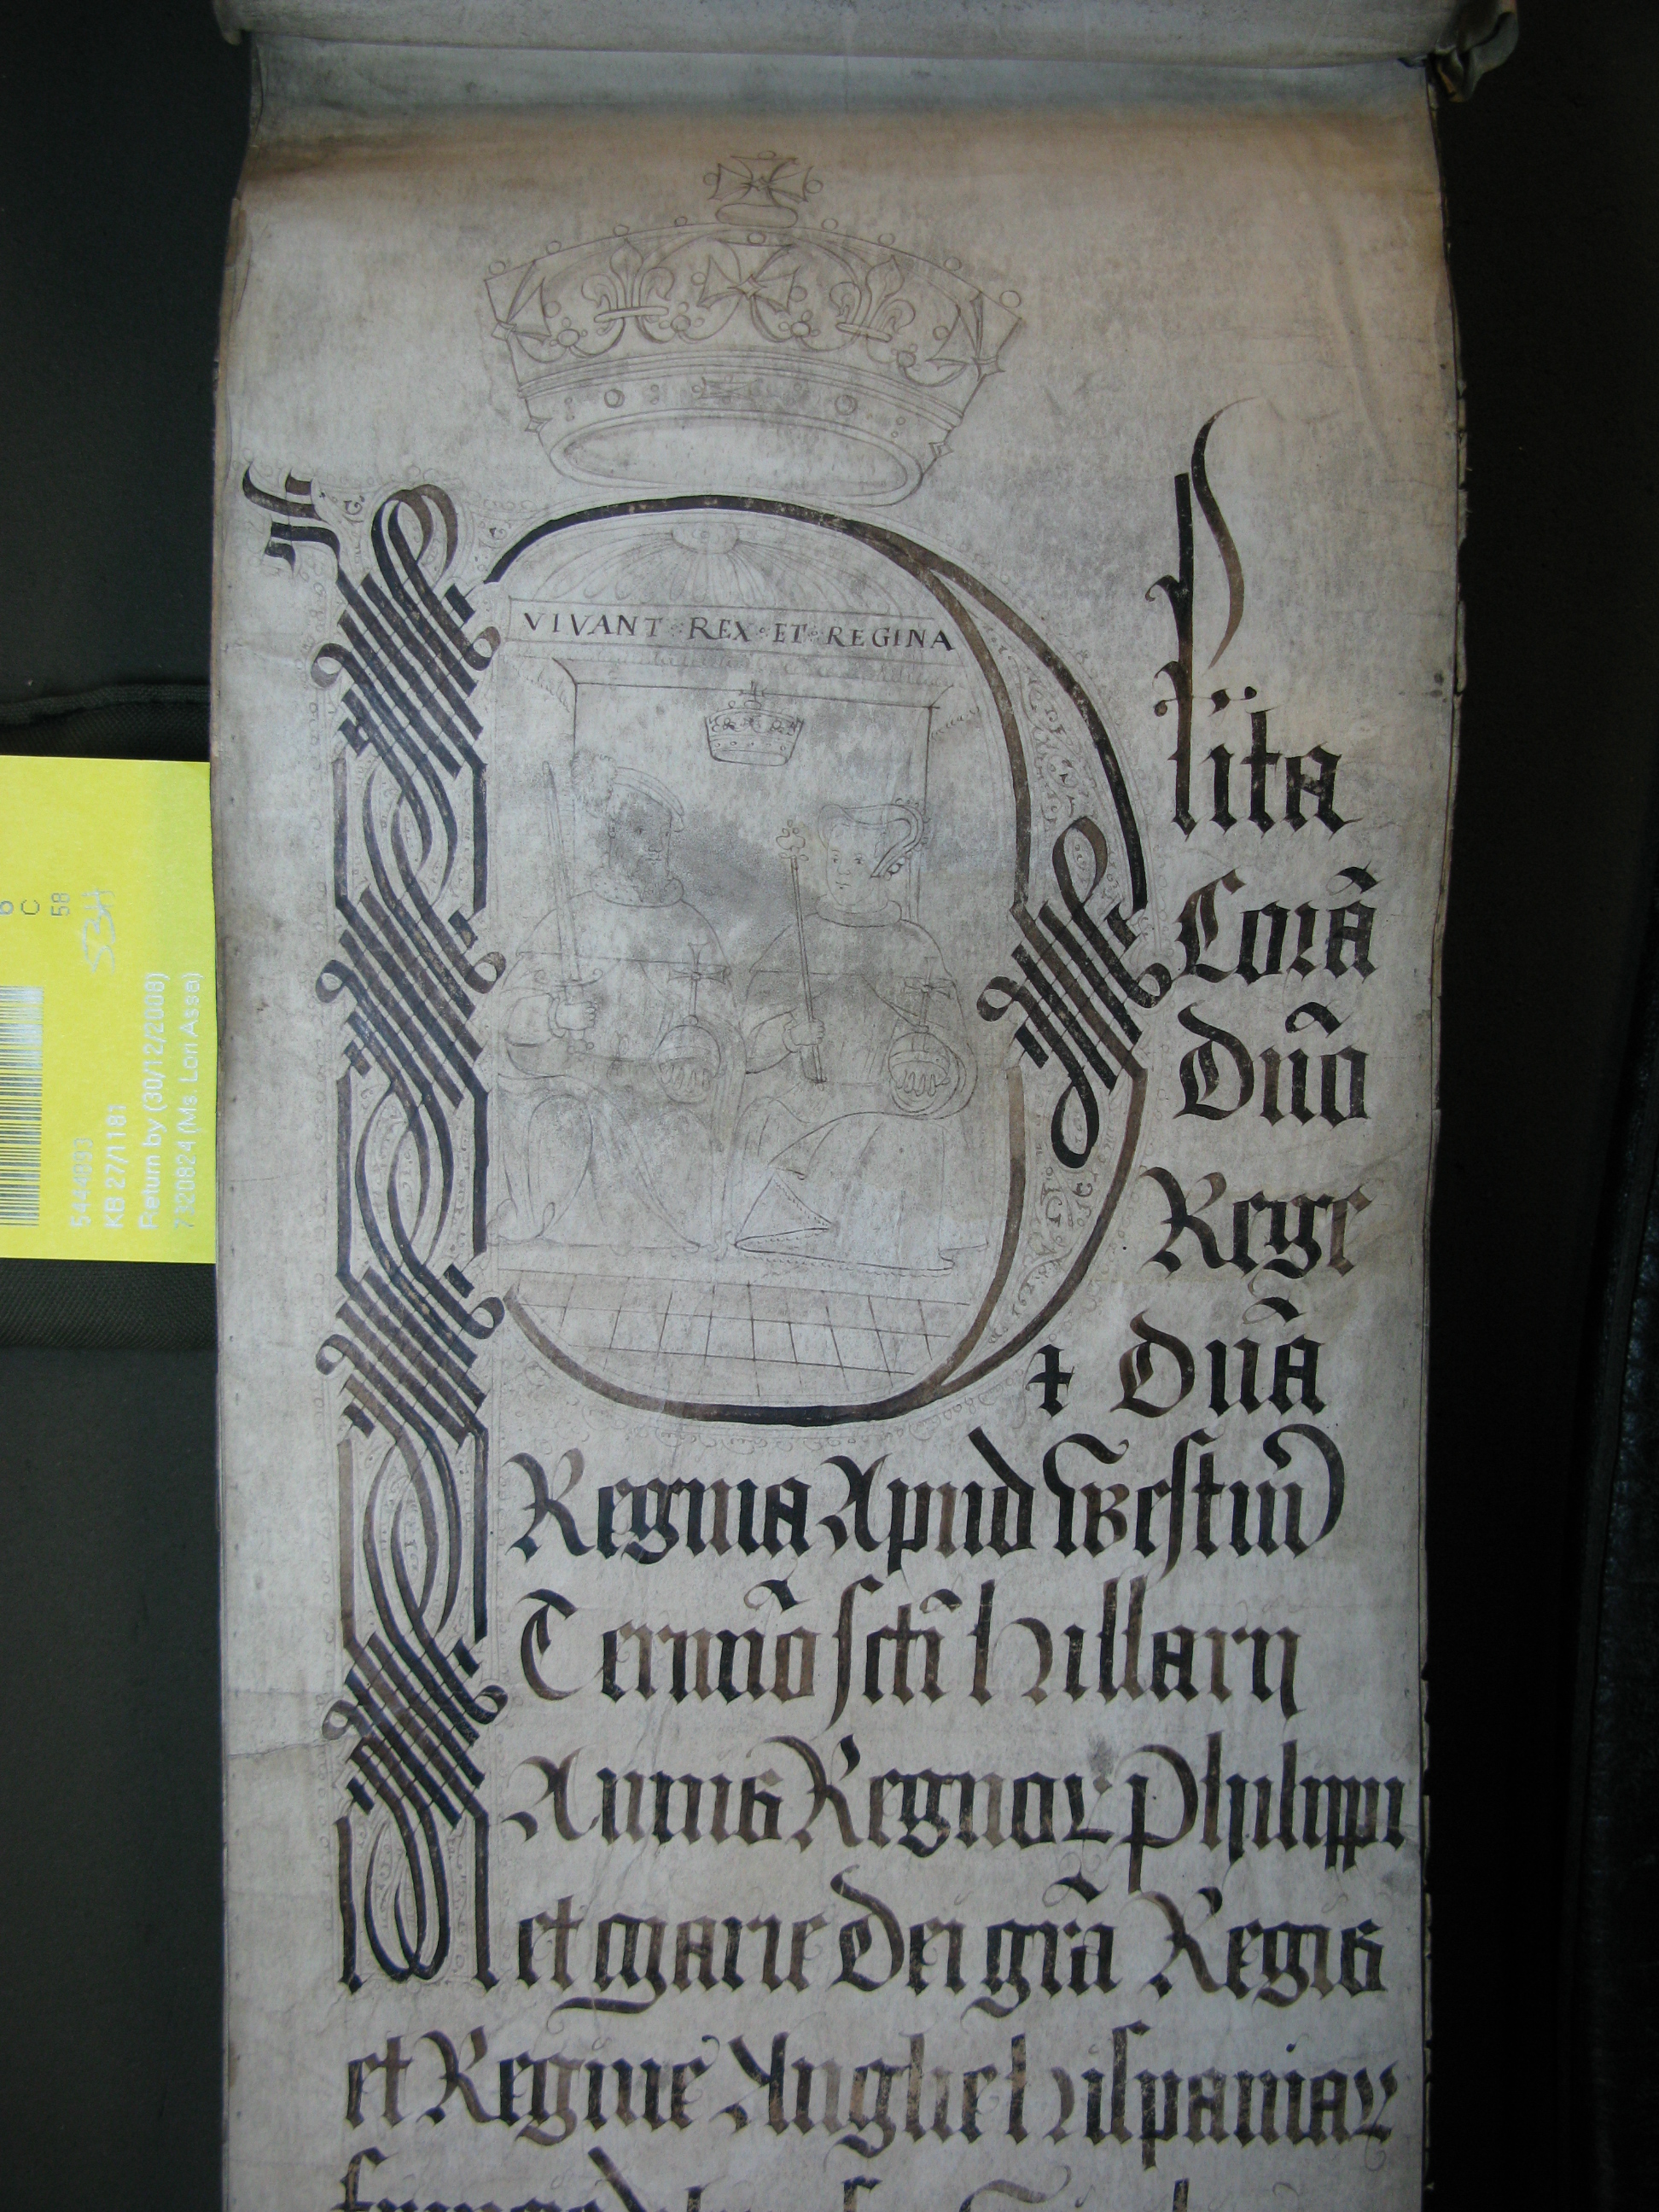 VIVANT REX ET REGINA
Plita
Corã
Dño
Rege
+ Dñã
Regina Apud Westm̃
Termĩo sc̃ti hillarij
Annis Regnoꝝ Philippi
et Marie Dei gr̃a Regis
et Regine Anglie hispaniaꝝ
C
58
53H
5444033
KB 27/1181
Return by (30/12/2008)
7320824 (Ms. Lori Asse)